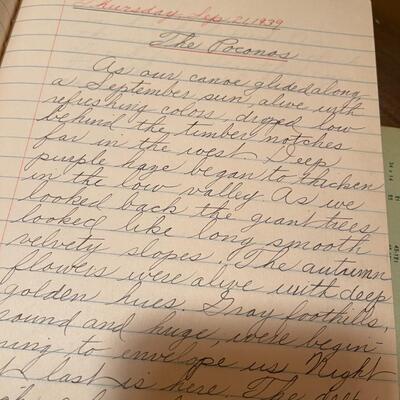 Thursday Sep. 21, 1939
The Poconos
As our canoe glided along
a September sun, alive with
refreshing colors, dipped low
behind the timber notches
far in the west. Deep
purple haze began to thicken
in the low valley. As we
looked back the giant trees
looked like long smooth
velvety slopes. The autumn
flowers were alive with deep
golden hues. Gray foothills,
round and huge, were begin-
ning to envelope us. Night
at last is here. The